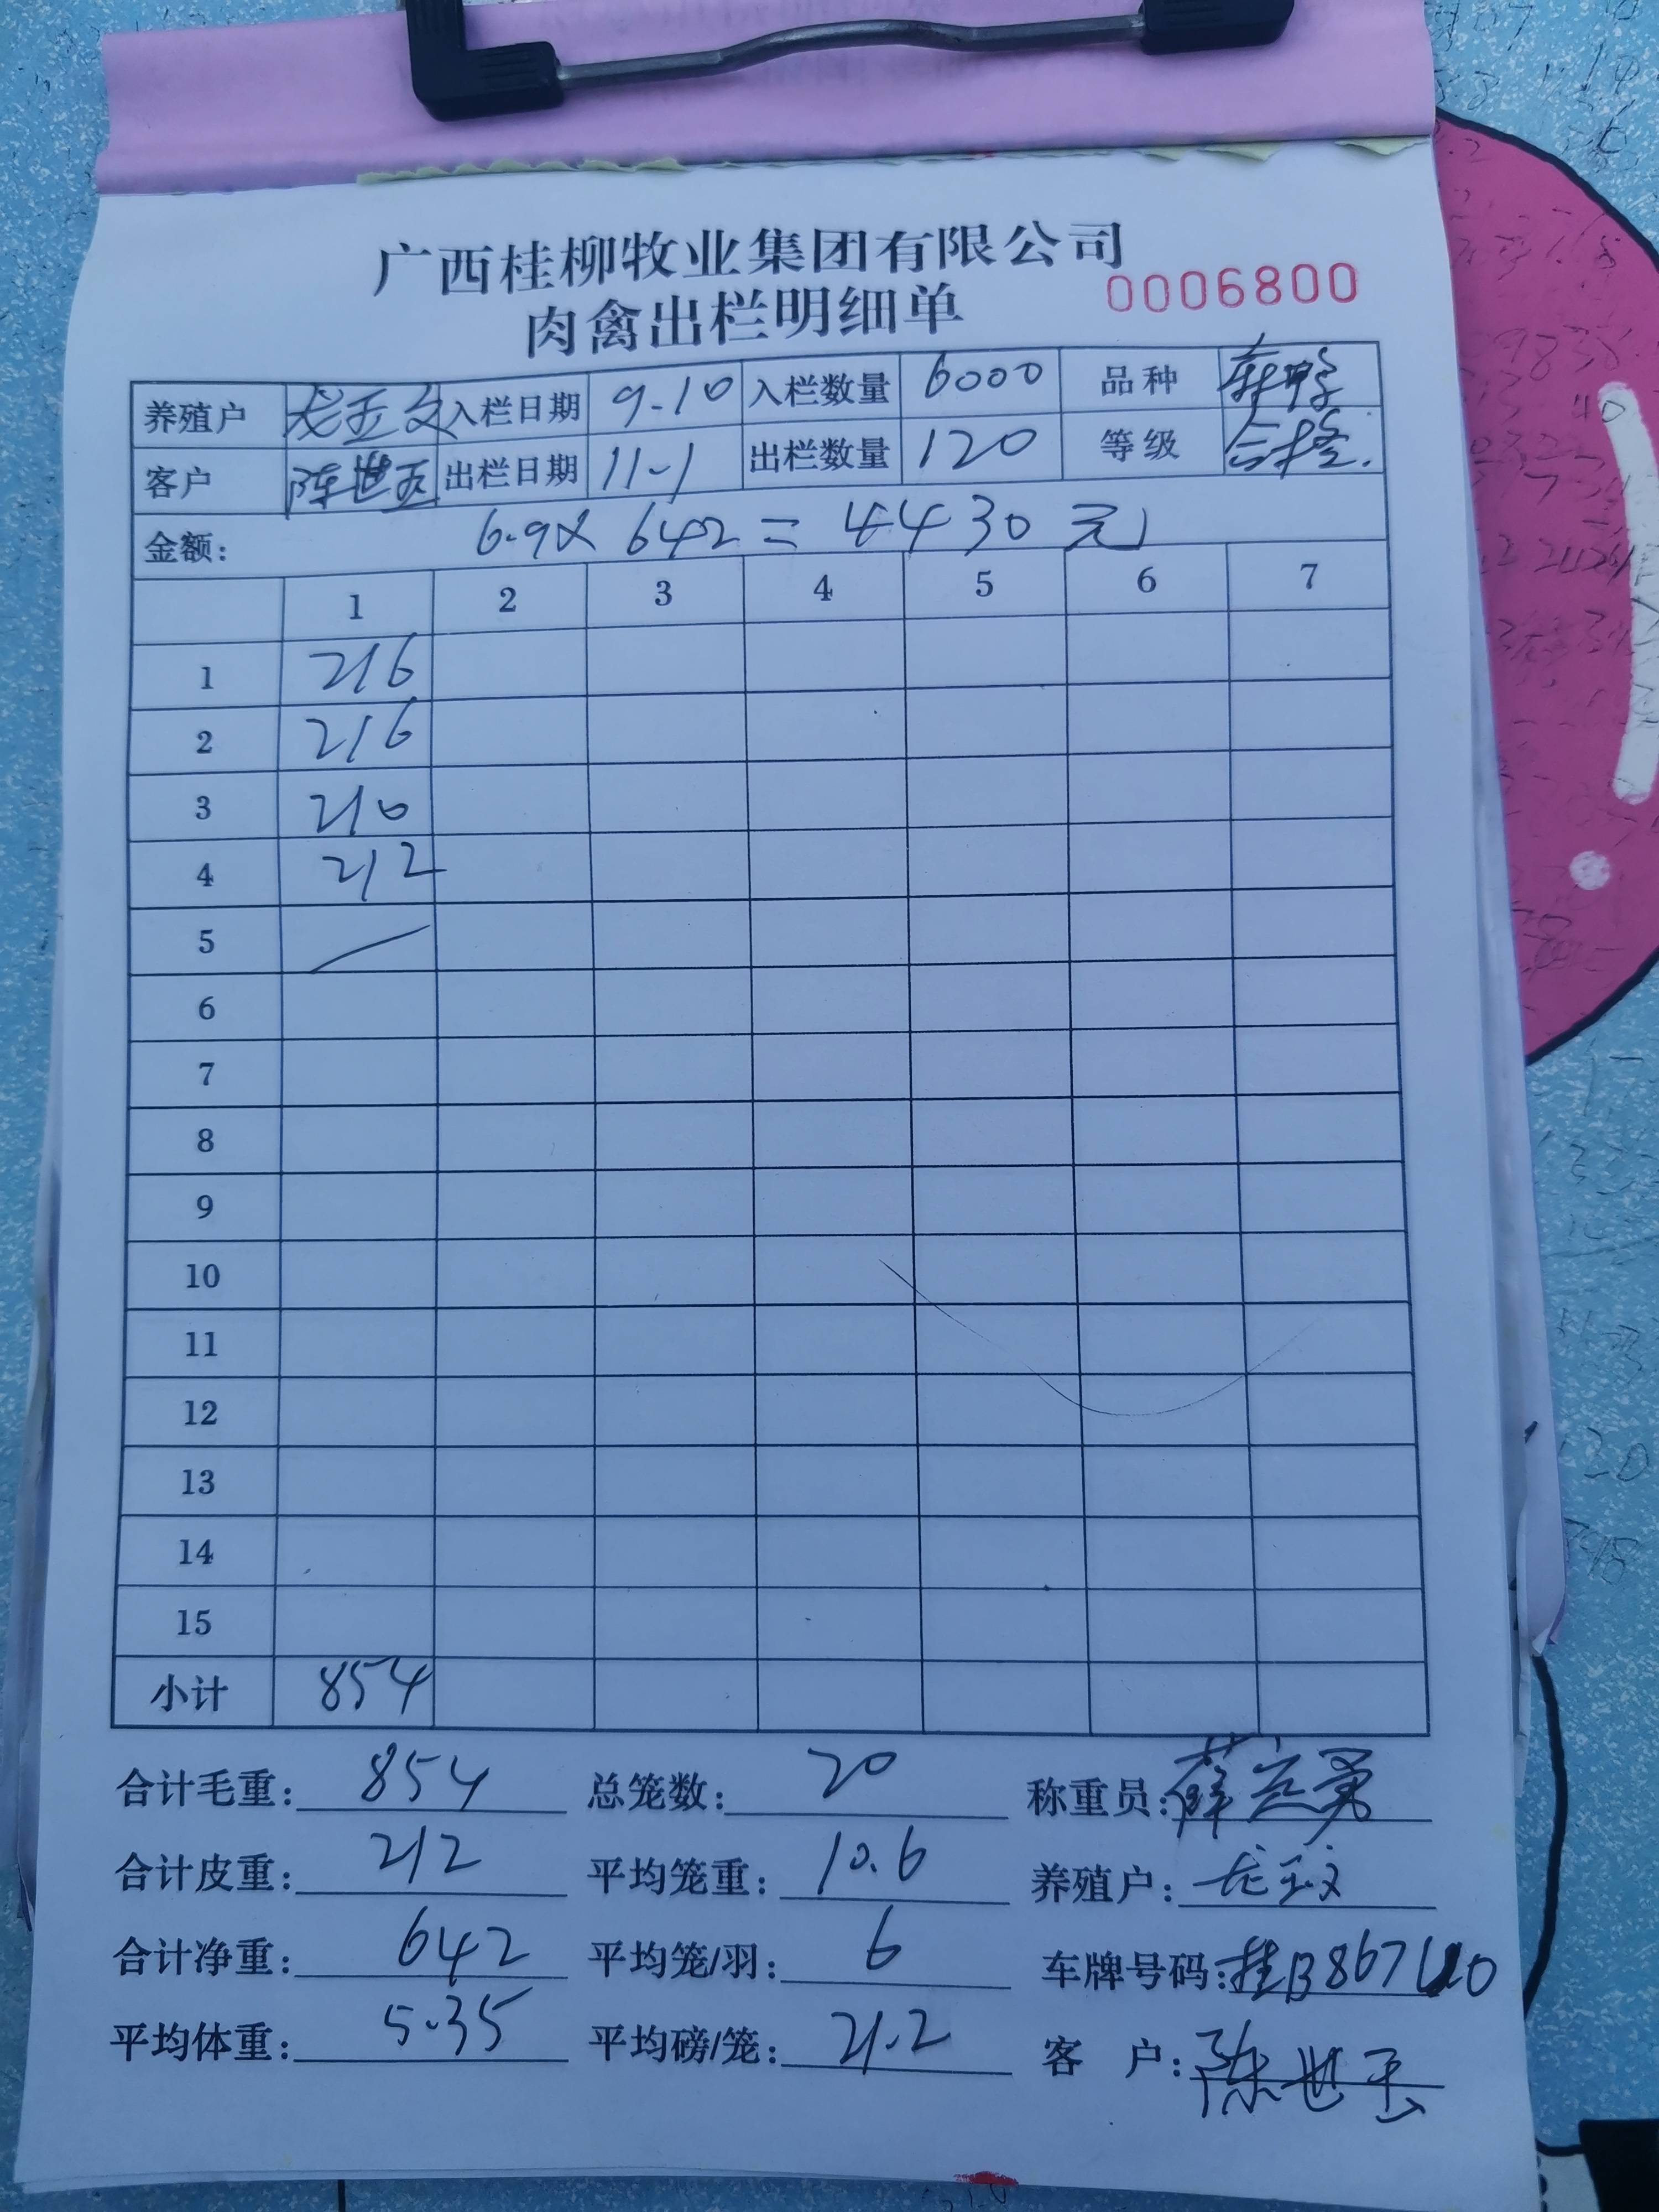 广西桂柳牧业集团有限公司
肉禽出栏明细单
0006800
养殖户 龙玉文 入栏日期 9.10 入栏数量 6000 品种
客户 陈世玉 出栏日期 11.1 出栏数量 120 等级 合格.
金额: 6.9X 642 = 4430 元
1 2 3 4 5 6 7
1 216
2 216
3 210
4 212
5
6
7
8
9
10
11
12
13
14
15
小计 854
合计毛重: 854 总笼数: 20 称重员:
合计皮重: 212 平均笼重: 10.6 养殖户: 龙玉文
合计净重: 642 平均笼/羽: 6 车牌号码: 桂B867
平均体重: 5.35 平均磅/笼: 21.2 客 户: 陈世玉